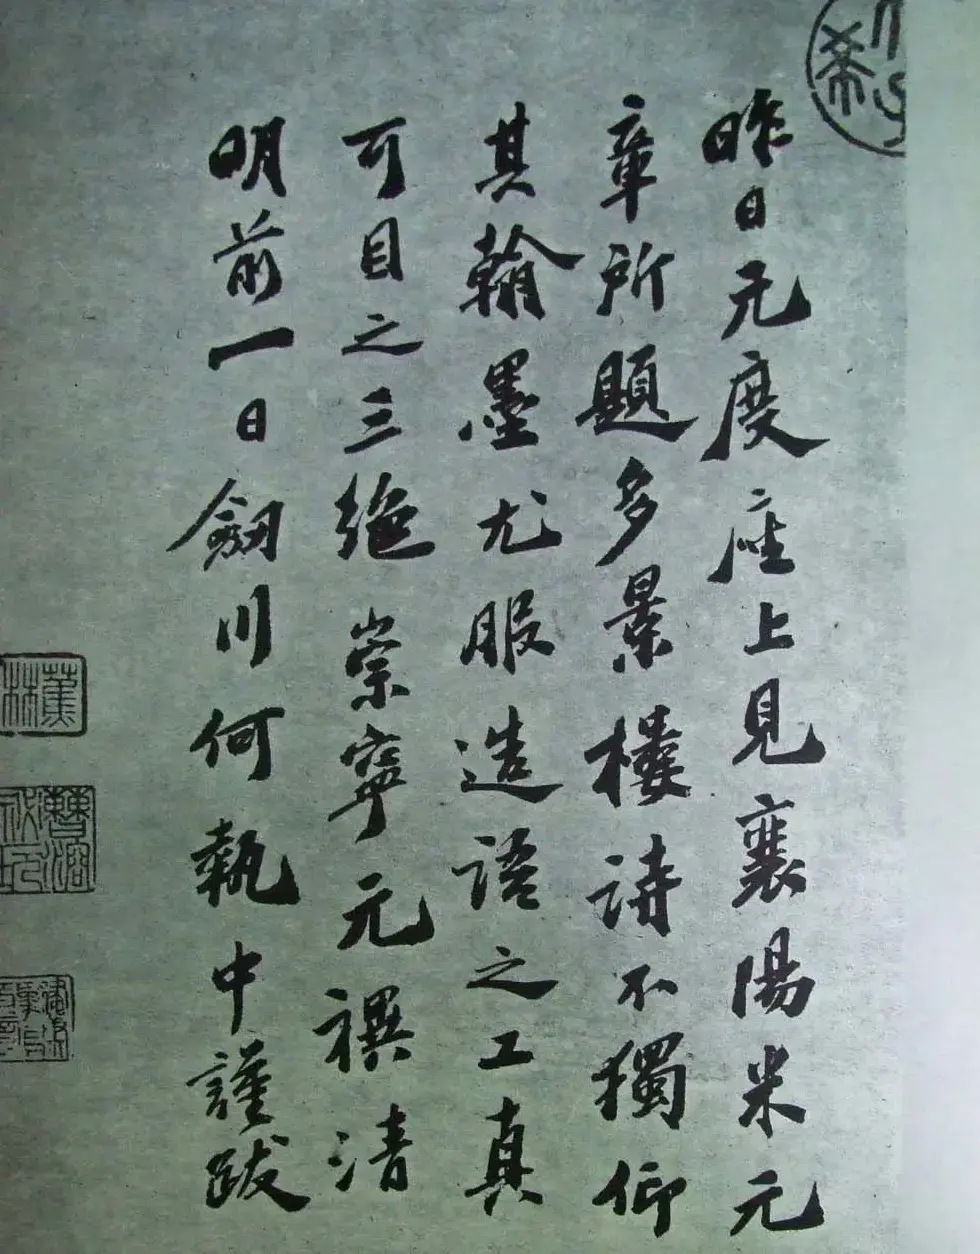 昨日元度座上見襄陽米元
章所題多景樓詩不獨仰
其翰墨尤服造語之工真
可目之三絶崇寧元禩清
明前一日劒川何執中謹跋